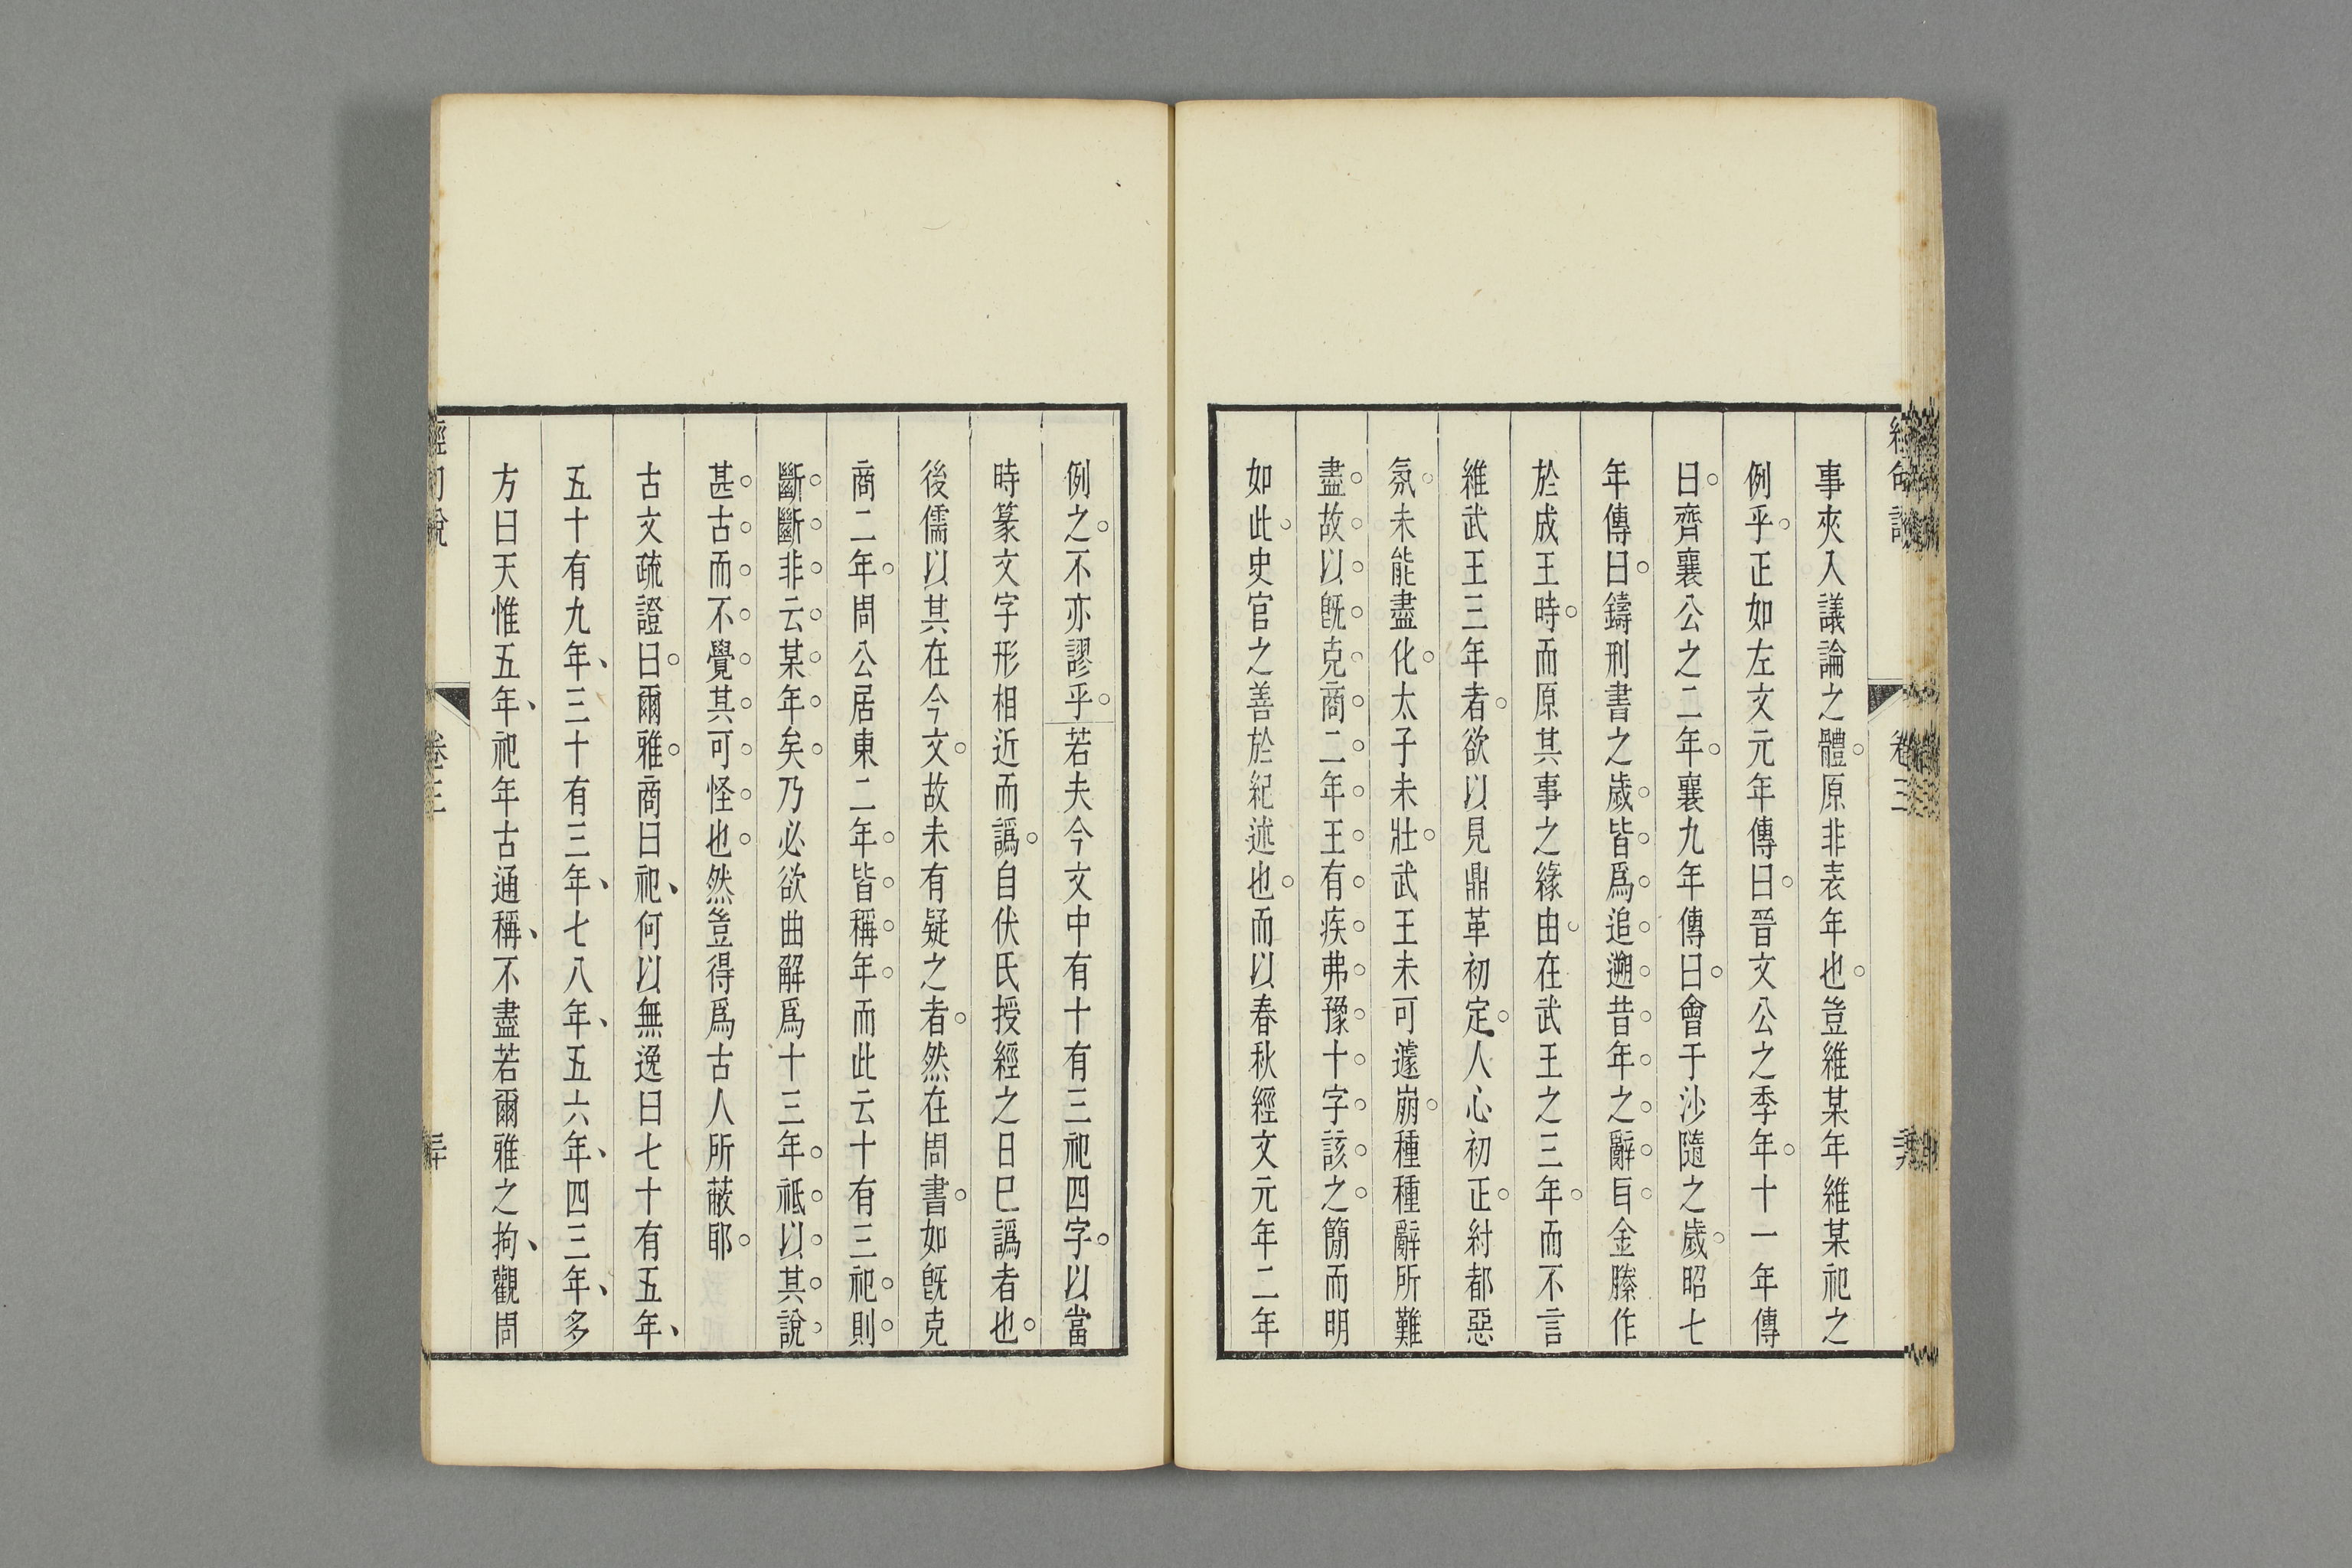 事夾入議論之體。原非表年也。豈維某年維某祀之
例乎。正如左文元年傳曰。晉文公之季年。十一年傳
曰。齊襄公之二年。襄九年傳曰。會于沙隨之歲。昭七
年傳曰。鑄刑書之歲。皆爲追遡昔年之辭㠯。金縢作
於成王時。而原其事之緣由。在武王之三年。而不言
維武王三年者。欲以見鼎革初定。人心初正。紂都惡
氛。未能盡化。太子未壯。武王未可遽崩。種種辭所難
盡。故以旣克商二年王有疾弗豫十字該之。簡而明
如此。史官之善於紀述也。而以春秋經文元年二年
例之。不亦謬乎。若夫今文中有十有三祀四字。以當
時篆文字形相近而譌。自伏氏授經之日巳譌者也。
後儒以其在今文。故未有疑之者。然在周書。如旣克
商二年。周公居東二年。皆稱年。而此云十有三祀。則
斷斷非云某年矣。乃必欲曲解爲十三年。祇以其說
甚古而不覺其可怪也。然豈得爲古人所蔽耶。
古文疏證曰。爾雅。商曰祀、何以無逸曰七十有五年、
五十有九年、三十有三年、七八年、五六年、四三年、多
方曰天惟五年、祀年古通稱、不盡若爾雅之拘、觀周
經句說
卷三